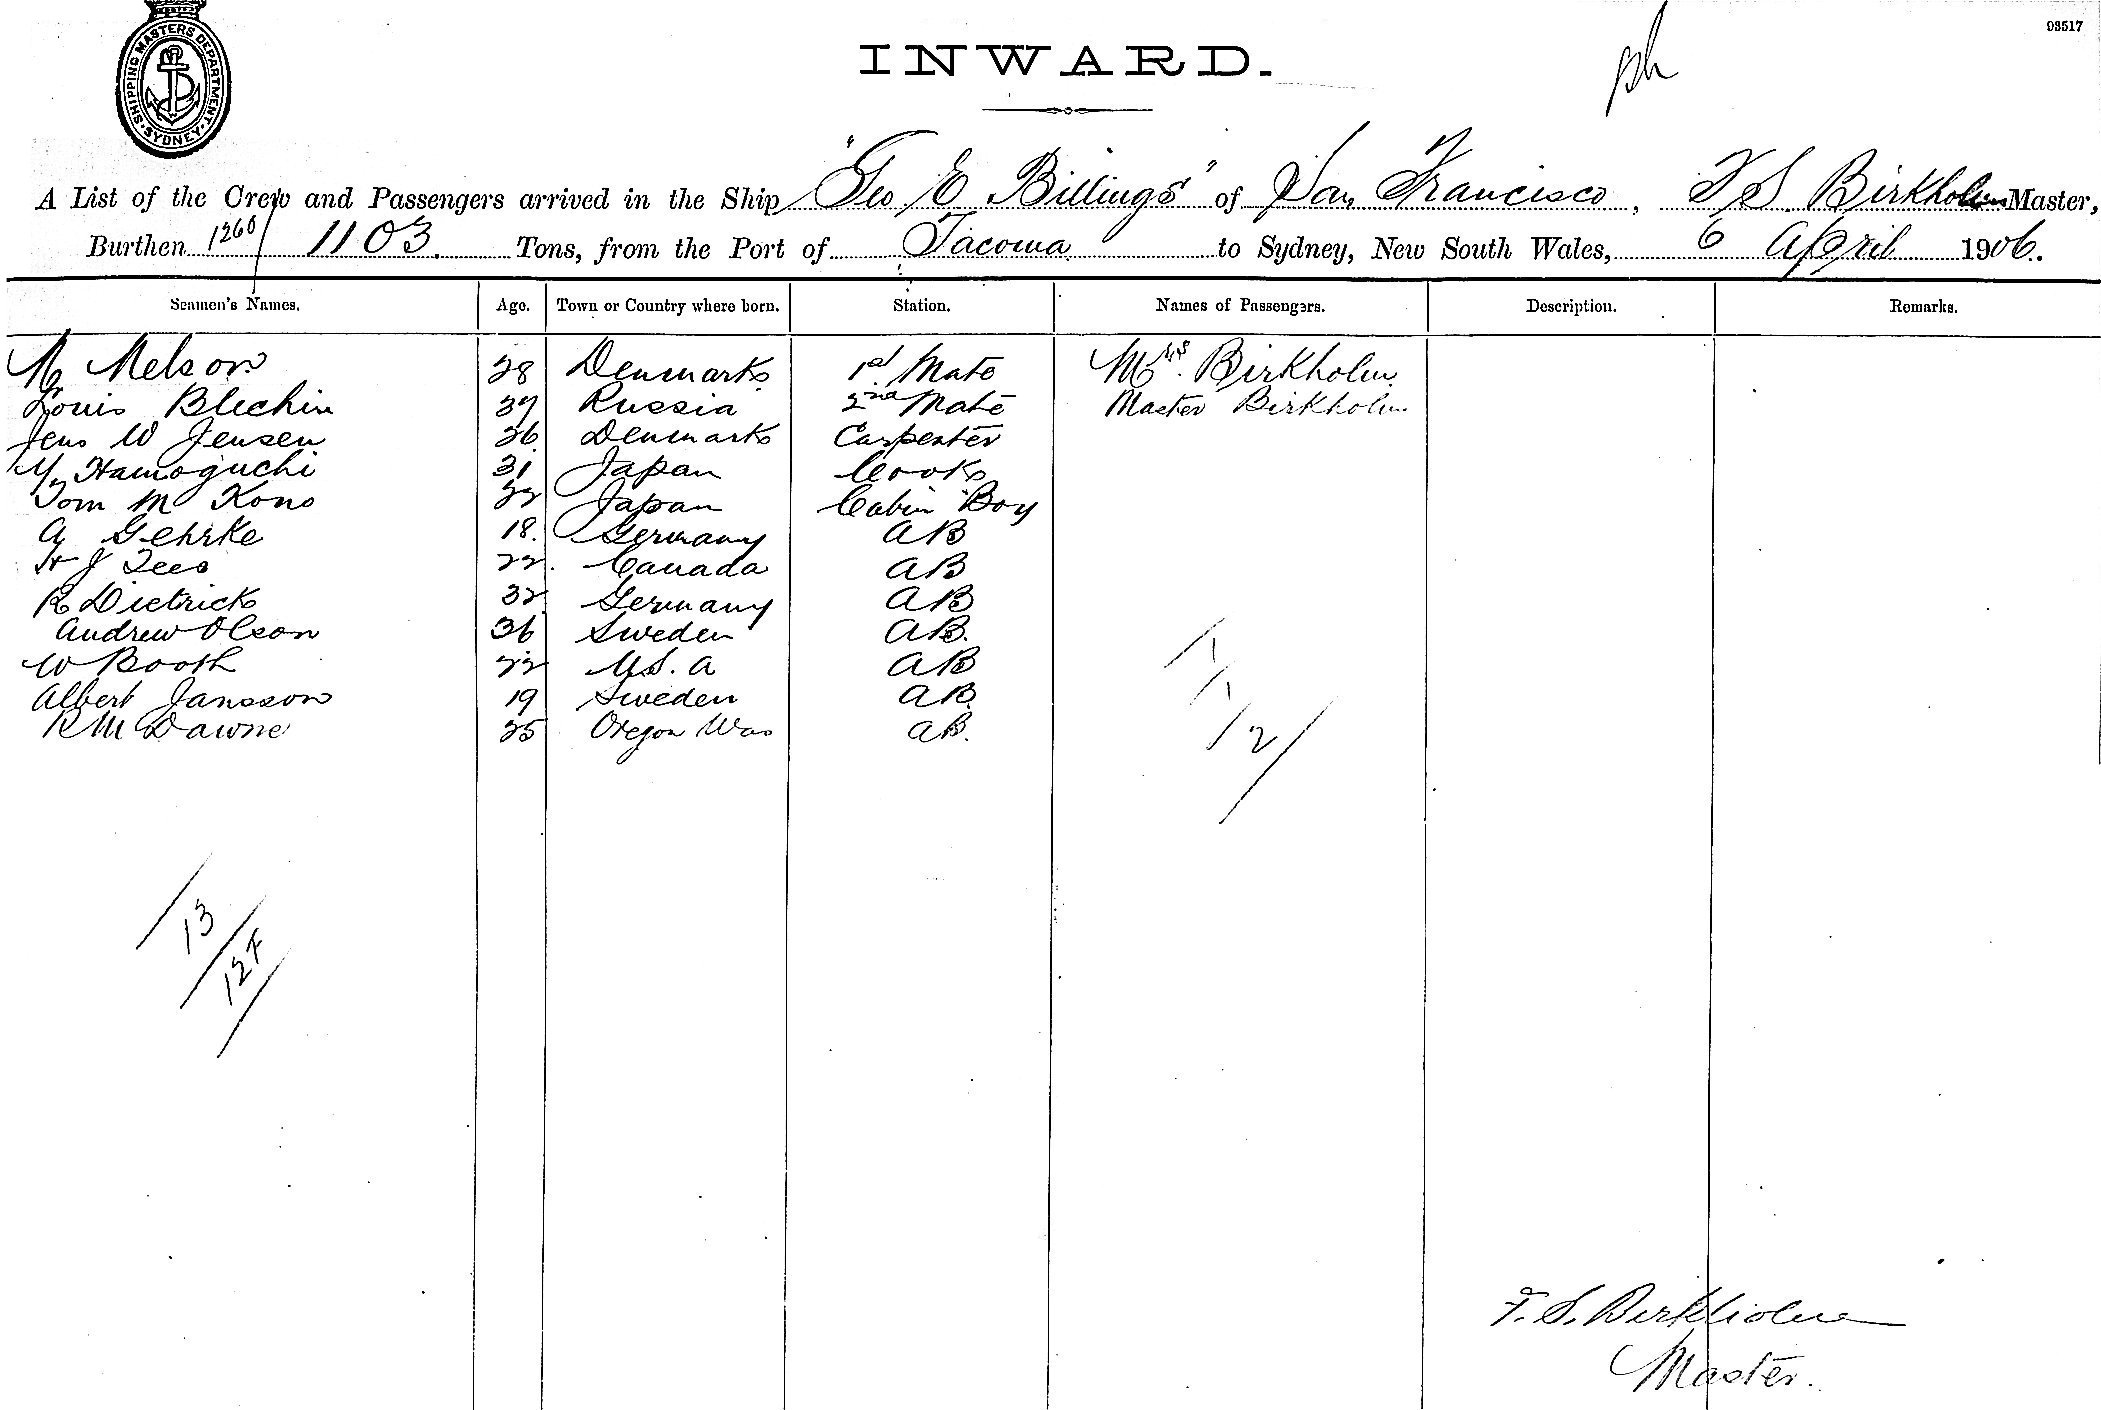 SHIPPING MASTERS DEPARTMENT. SYDNEY.
93517
INWARD.
A List of the Crew and Passengers arrived in the Ship "Geo E Billings" of San Francisco, F. S. Birkholm Master,
Burthen 1260/ 1103. Tons, from the Port of Tacoma to Sydney, New South Wales, 6 April 1906.
Seamen's Names. Age. Town or Country where born. Station. Names of Passengers. Description. Remarks.
Melson 28 Denmark 1st Mate Mrs. Birkholm
Louis Blechin 37 Russia 2nd Mate Master Birkholm
Jens W Jensen 26 Denmark Carpenter
Y Hamoguchi 31 Japan Cook
Tom M Kono 22 Japan Cabin Boy
A Gehrke 18. Germany AB
H J Lees 22 Canada AB
R Dietrick 32 Germany AB
Andrew Olson 36 Sweden AB.
W Booth 22 U.S.A AB
Albert Jansson 19 Sweden AB
R M Dawne 25 Oregon Was AB.
1
1
2
13
F. S. Birkholm
Master.